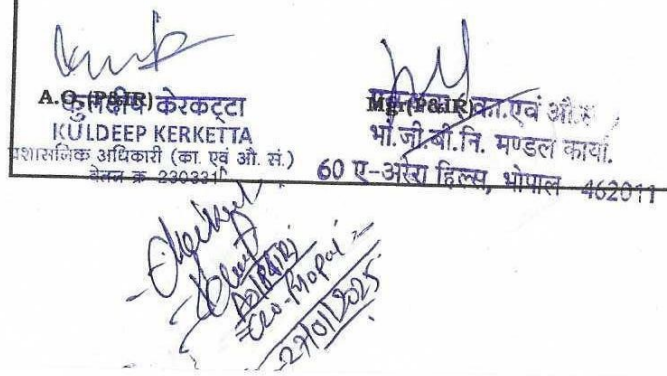 A.O.(P&IR)
कुलदीप केरकट्टा
KULDEEP KERKETTA
प्रशासनिक अधिकारी (का. एवं औ. सं.)
वेतन क्र 230331
Mgr(P&IR)
का.एवं औ.सं
भा.जी.बी.नि. मण्डल कार्या.
60 ए-अरेरा हिल्स, भोपाल 462011
AO(P&IR)
27/01/2025